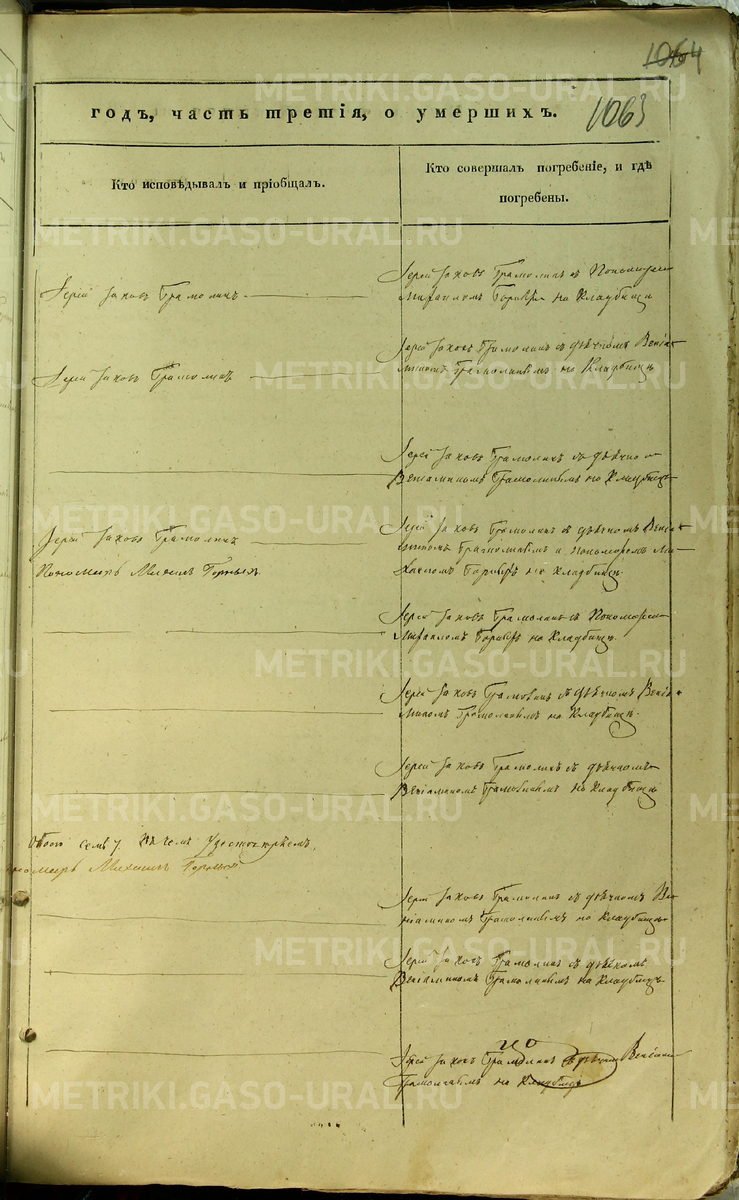 1064
1063
годъ, часть третія, о умершихъ.
Кто исповѣдывалъ и пріобщалъ.
Кто совершалъ погребеніе, и гдѣ
погребены.
Іерей Іаковъ Грамолинъ
Іерей Іаковъ Грамолинъ съ Пономаремъ
Михаиломъ на Кладбищѣ
Іерей Іаковъ Грамолинъ
Іерей Іаковъ Грамолинъ съ дьячкомъ Веніа-
миномъ Грамолинымъ на Кладбищѣ
Іерей Іаковъ Грамолинъ съ дьячкомъ
Веніаминомъ Грамолинымъ на Кладбищѣ
Іерей Іаковъ Грамолинъ
Пономарь Михаилъ
Іерей Іаковъ Грамолинъ съ дьячкомъ Веніа-
миномъ Грамолинымъ и пономаремъ Ми-
хаиломъ на Кладбищѣ
Іерей Іаковъ Грамолинъ съ Пономаремъ
Михаиломъ на Кладбищѣ
Іерей Іаковъ Грамолинъ съ дьячкомъ Веніа-
миномъ Грамолинымъ на Кладбищѣ
Іерей Іаковъ Грамолинъ съ дьячкомъ
Веніаминомъ Грамолинымъ на Кладбищѣ
семъ
Михаилъ
Іерей Іаковъ Грамолинъ съ дьячкомъ Ве-
ніаминомъ Грамолинымъ на Кладбищѣ
Іерей Іаковъ Грамолинъ съ дьячкомъ
Веніаминомъ Грамолинымъ на Кладбищѣ
Іерей Іаковъ Грамолинъ съ дьячкомъ
Грамолинымъ на Кладбищѣ
METRIKI.GASO-URAL.RU